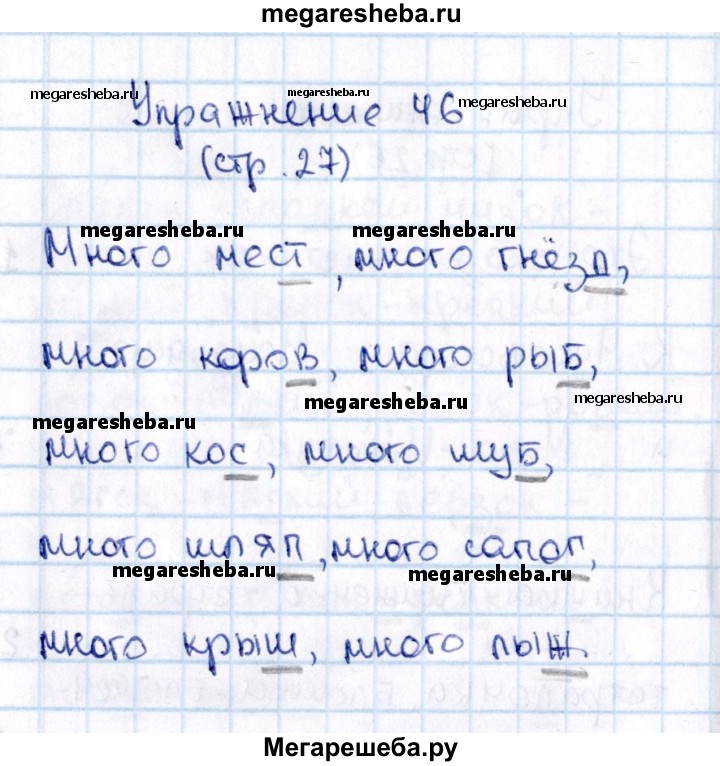 megaresheba.ru
megaresheba.ru megaresheba.ru megaresheba.ru
Упражнение 46
(стр. 27)
megaresheba.ru megaresheba.ru
Много мест, много гнёзд,
много коров, много рыб,
megaresheba.ru megaresheba.ru
megaresheba.ru
много кос, много шуб,
много шляп, много сапог,
megaresheba.ru megaresheba.ru
много крыш, много лыж
Мегарешеба.ру